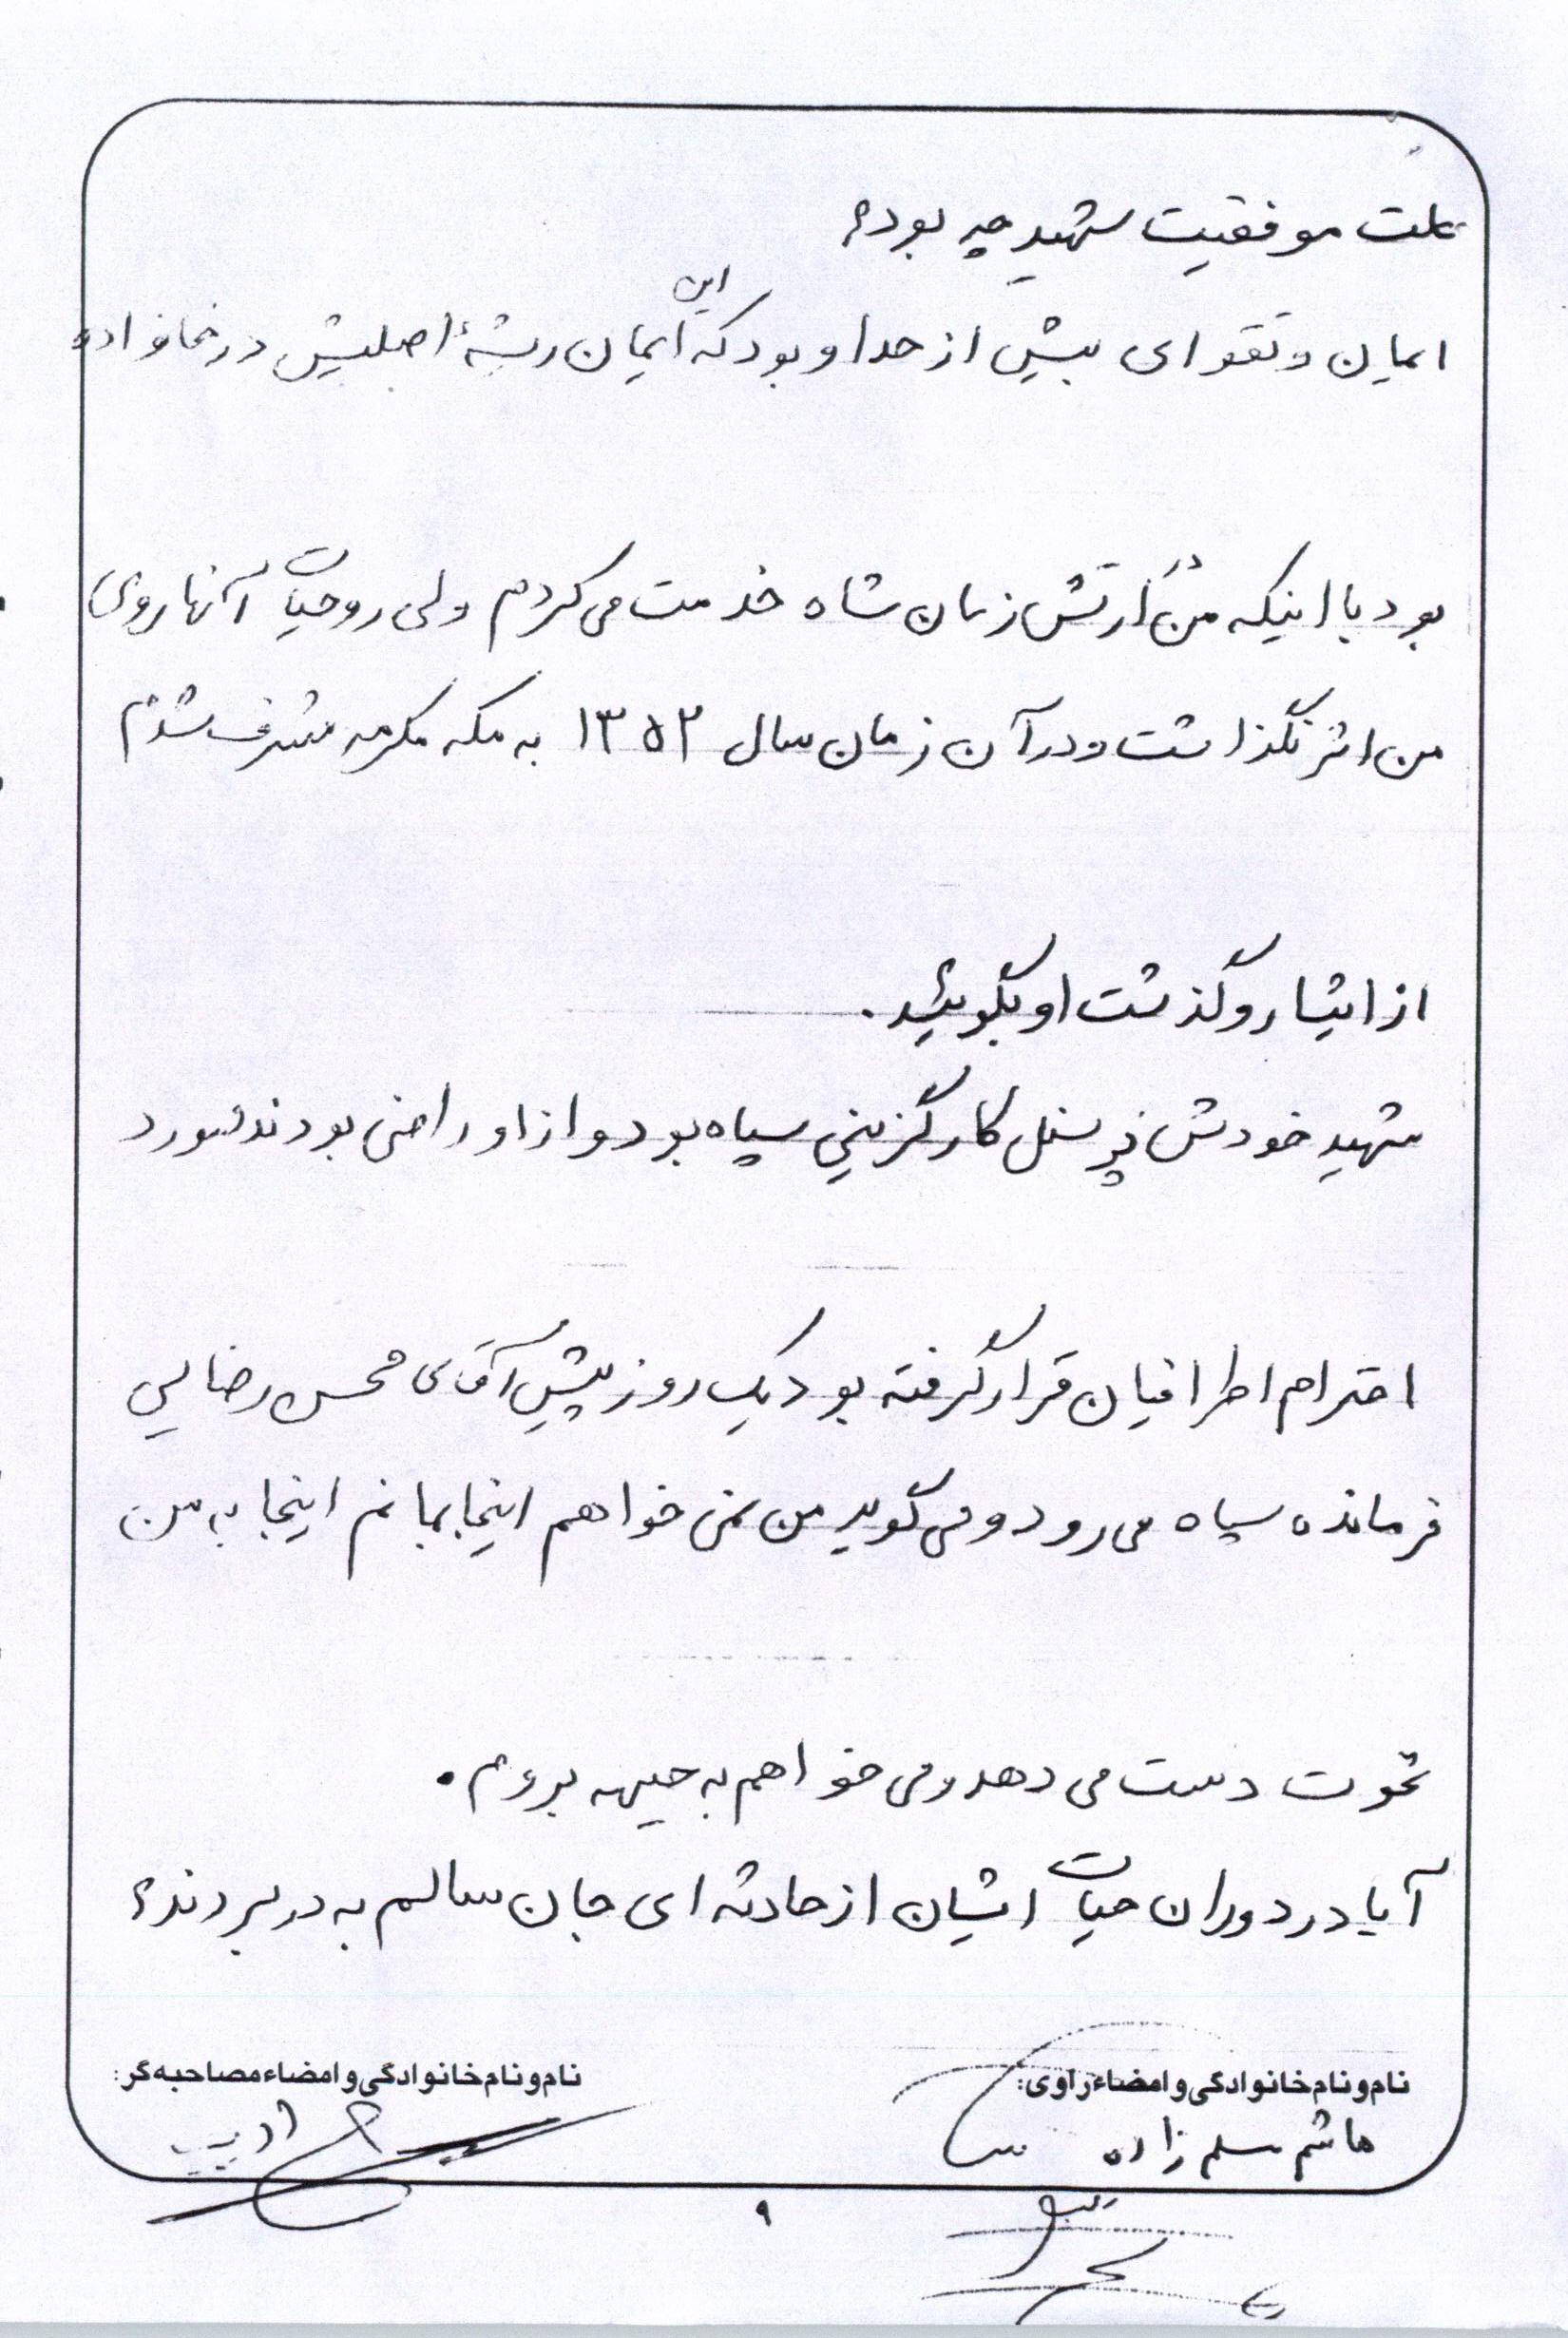 علت موفقیت شهید چه بود؟
ایمان و تقوای بیش از حد او بود که این ایمان ریشهٔ اصلیش در خانواده
بود با اینکه من در ارتش زمان شاه خدمت می کردم ولی روحیات آنها روی
من اثر نگذاشت و در آن زمان سال ۱۳۵۲ به مکه مکرمه مشرف شدم
از ایثار و گذشت او بگوئید.
شهید خودش پرسنل کارگزینی سپاه بود و از او راضی بودند و مورد
احترام اطرافیان قرار گرفته بود یک روز پیش آقای محسن رضایی
فرمانده سپاه می رود و می گوید من نمی خواهم اینجا بمانم اینجا به من
نخوت دست می دهد و می خواهم به جبهه بروم.
آیا در دوران حیات ایشان از حادثه ای جان سالم به در بردند؟
نام و نام خانوادگی و امضاء راوی:
نام و نام خانوادگی و امضاء مصاحبه گر:
هاشم مسلم زاده
ادیب
۹